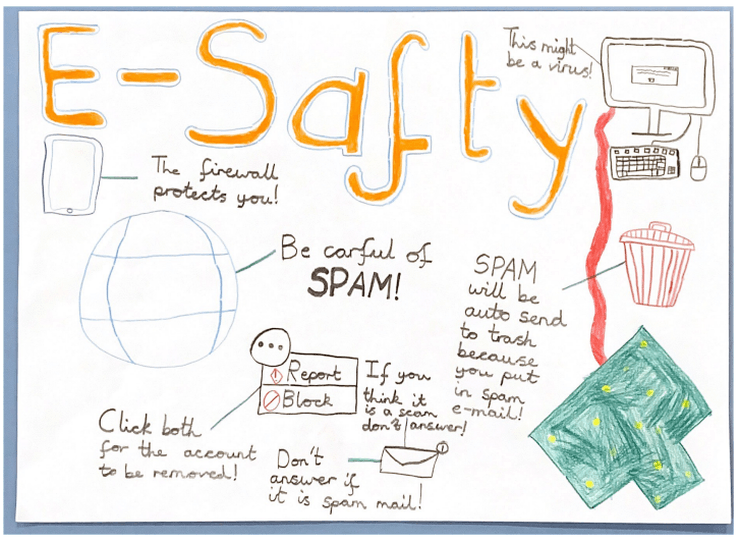 E-Safty
This might
be a virus!
The firewall
protects you!
Be carful of
SPAM!
SPAM
will be
auto send
to trash
because
you put
in spam
e-mail!
Report
Block
If you
think it
is a scam
don't answer!
Click both
for the account
to be removed!
Don't
answer if
it is spam mail!